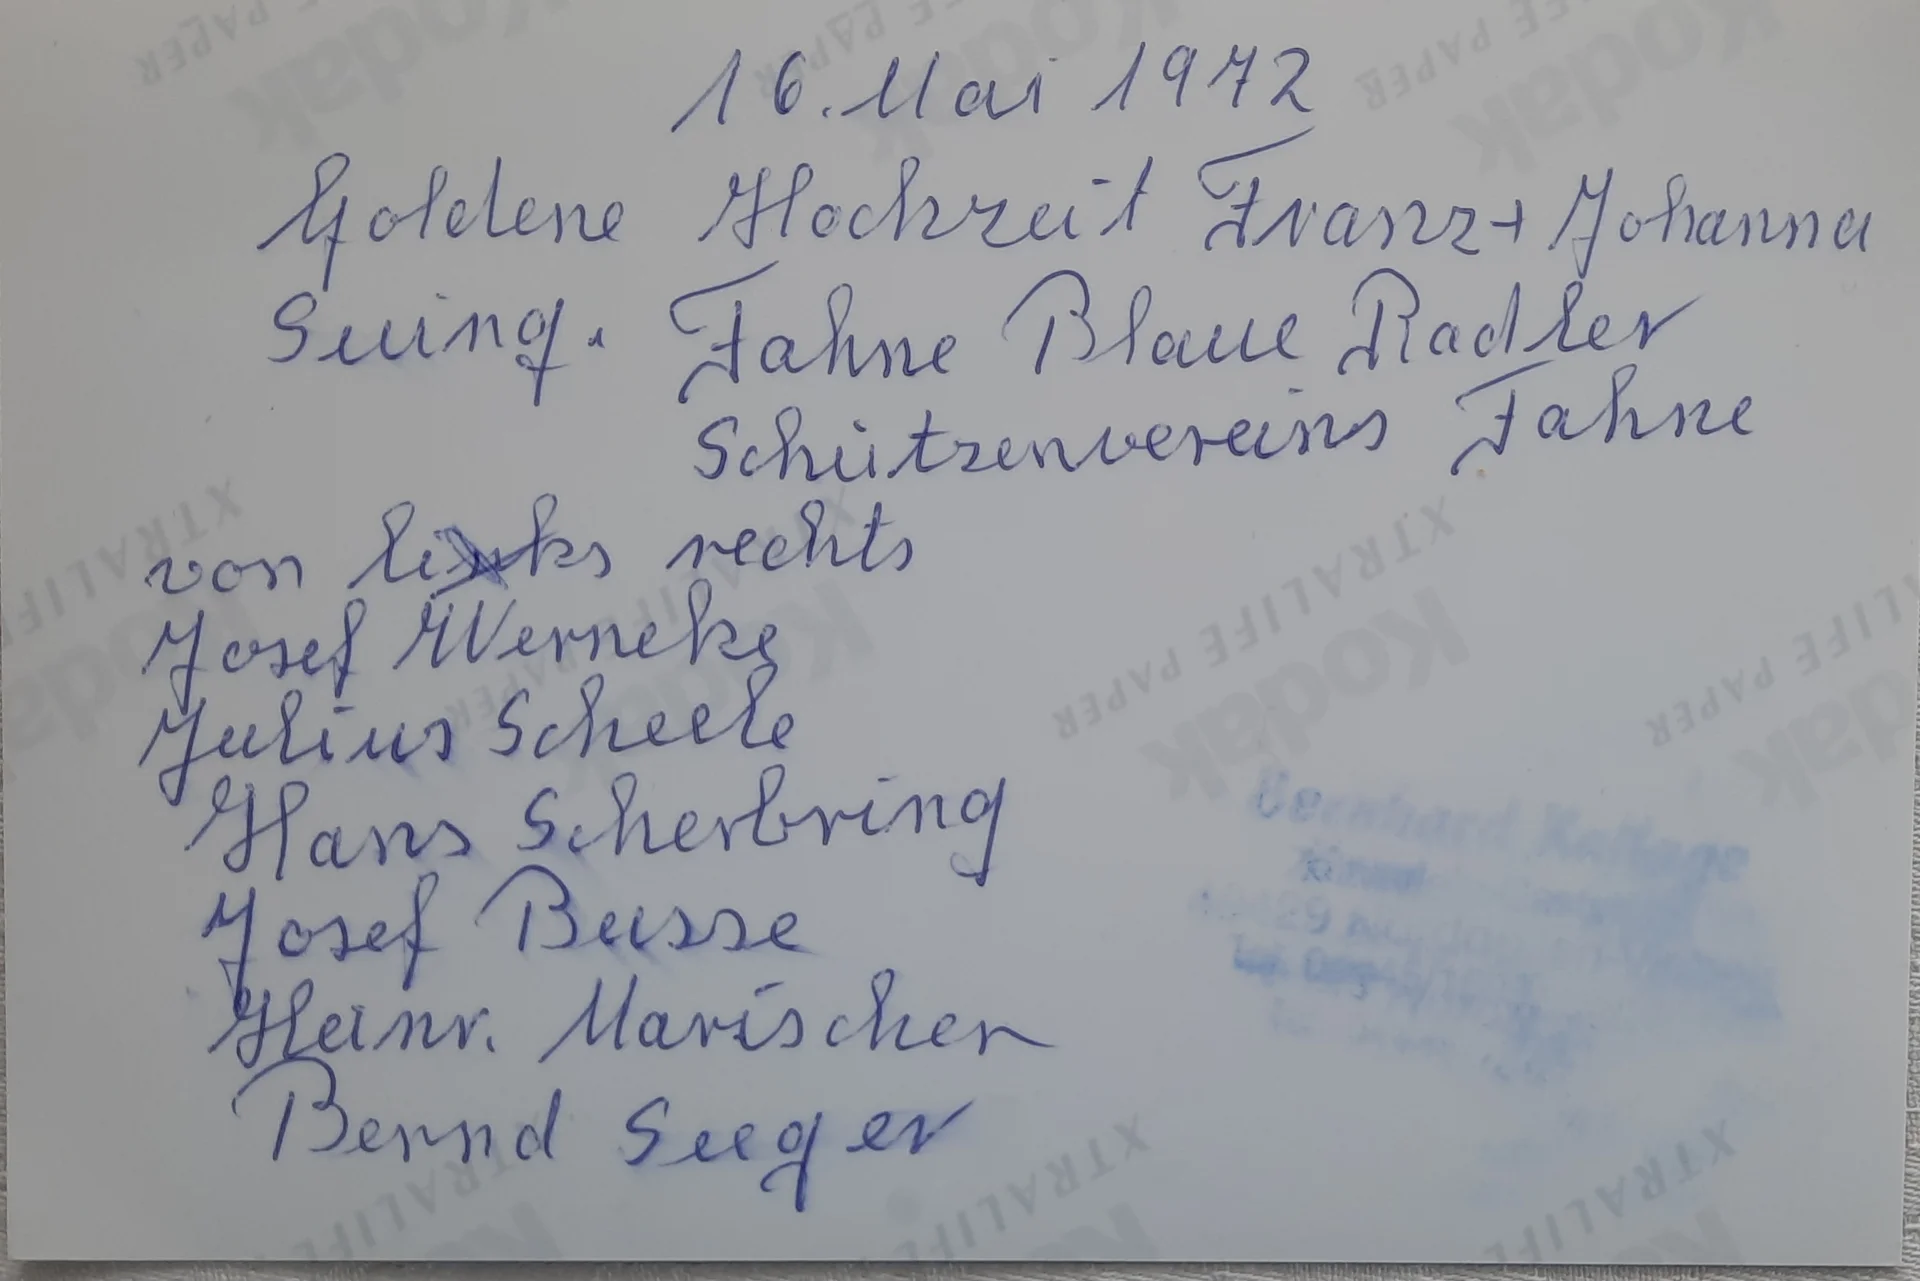 16. Mai 1972
Goldene Hochzeit Franz + Johanna
Suing. Fahne Blaue Radler
Schützenvereins Fahne
von links rechts
Josef Werneke
Julius Scheele
Hans Scherbring
Josef Busse
Heinr. Marischen
Bernd Seeger
Bernhard Kallage
XTRALIFE PAPER
Kodak